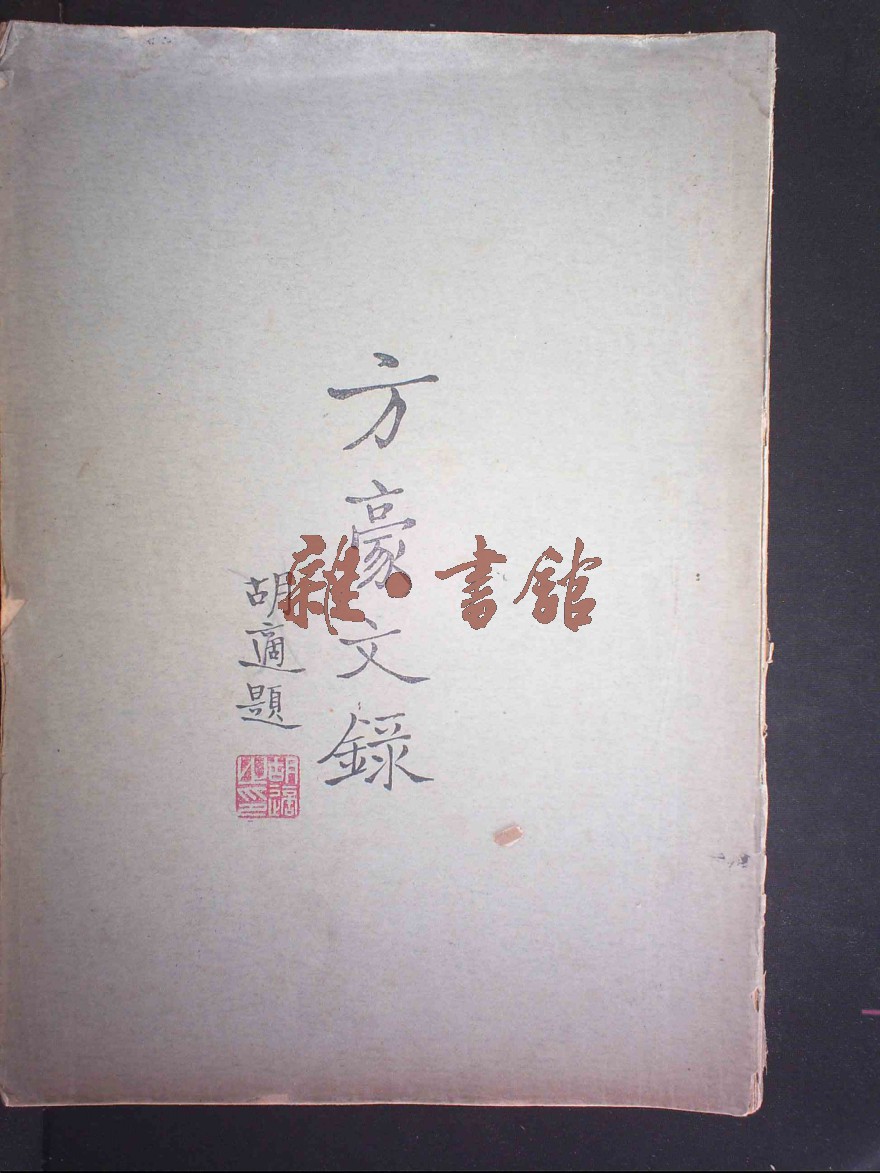 方豪文錄
胡適題
胡適之印
雜·書館